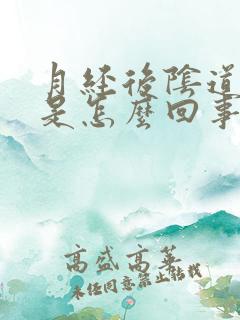 月经後陰道
是怎麼回事
高盛高華
未经同意禁止転載